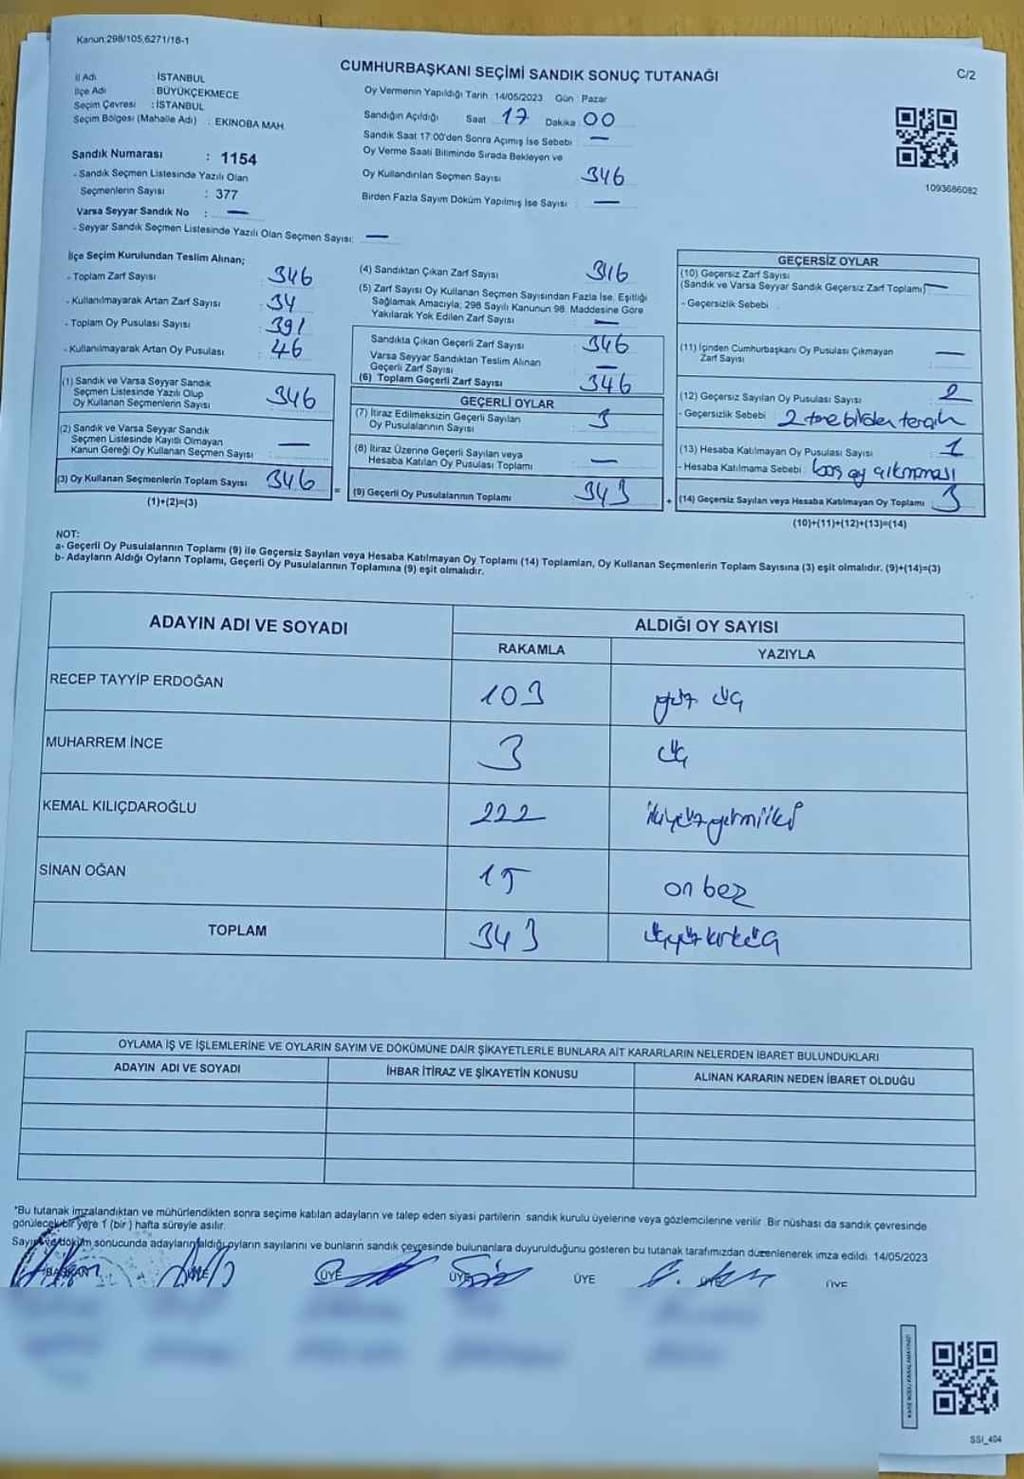 Kanun:298/105,6271/18-1
CUMHURBAŞKANI SEÇİMİ SANDIK SONUÇ TUTANAĞI
C/2
İl Adı : İSTANBUL
İlçe Adı : BÜYÜKÇEKMECE
Seçim Çevresi : İSTANBUL
Seçim Bölgesi (Mahalle Adı) : EKİNOBA MAH.
Sandık Numarası : 1154
- Sandık Seçmen Listesinde Yazılı Olan
Seçmenlerin Sayısı : 377
Varsa Seyyar Sandık No : —
- Seyyar Sandık Seçmen Listesinde Yazılı Olan Seçmen Sayısı: —
Oy Vermenin Yapıldığı Tarih : 14/05/2023 Gün : Pazar
Sandığın Açıldığı Saat : 17 Dakika : 00
Sandık Saat 17:00'den Sonra Açımış İse Sebebi : —
Oy Verme Saati Bitiminde Sırada Bekleyen ve
Oy Kullandırılan Seçmen Sayısı : 346
Birden Fazla Sayım Döküm Yapılmış İse Sayısı : —
1093686082
İlçe Seçim Kurulundan Teslim Alınan;
- Toplam Zarf Sayısı : 346
- Kullanılmayarak Artan Zarf Sayısı : 34
- Toplam Oy Pusulası Sayısı : 391
- Kullanılmayarak Artan Oy Pusulası : 46
(1) Sandık ve Varsa Seyyar Sandık
Seçmen Listesinde Yazılı Olup
Oy Kullanan Seçmenlerin Sayısı : 346
(2) Sandık ve Varsa Seyyar Sandık
Seçmen Listesinde Kayıtlı Olmayan
Kanun Gereği Oy Kullanan Seçmen Sayısı : —
(3) Oy Kullanan Seçmenlerin Toplam Sayısı : 346
(1)+(2)=(3)
(4) Sandıktan Çıkan Zarf Sayısı : 346
(5) Zarf Sayısı Oy Kullanan Seçmen Sayısından Fazla İse, Eşitliği
Sağlamak Amacıyla; 298 Sayılı Kanunun 98. Maddesine Göre
Yakılarak Yok Edilen Zarf Sayısı : —
Sandıkta Çıkan Geçerli Zarf Sayısı : 346
Varsa Seyyar Sandıktan Teslim Alınan
Geçerli Zarf Sayısı : —
(6) Toplam Geçerli Zarf Sayısı : 346
GEÇERLİ OYLAR
(7) İtiraz Edilmeksizin Geçerli Sayılan
Oy Pusulalarının Sayısı : 3
(8) İtiraz Üzerine Geçerli Sayılan veya
Hesaba Katılan Oy Pusulası Toplamı : —
= (9) Geçerli Oy Pusulalarının Toplamı : 343
GEÇERSİZ OYLAR
(10) Geçersiz Zarf Sayısı
(Sandık ve Varsa Seyyar Sandık Geçersiz Zarf Toplamı) —
- Geçersizlik Sebebi :
(11) İçinden Cumhurbaşkanı Oy Pusulası Çıkmayan
Zarf Sayısı : —
(12) Geçersiz Sayılan Oy Pusulası Sayısı : 2
- Geçersizlik Sebebi : 2 tane birden tercih
(13) Hesaba Katılmayan Oy Pusulası Sayısı : 1
- Hesaba Katılmama Sebebi : boş oy çıkmması
+ (14) Geçersiz Sayılan veya Hesaba Katılmayan Oy Toplamı : 3
(10)+(11)+(12)+(13)=(14)
NOT:
a- Geçerli Oy Pusulalarının Toplamı (9) ile Geçersiz Sayılan veya Hesaba Katılmayan Oy Toplamı (14) Toplamları, Oy Kullanan Seçmenlerin Toplam Sayısına (3) eşit olmalıdır. (9)+(14)=(3)
b- Adayların Aldığı Oyların Toplamı, Geçerli Oy Pusulalarının Toplamına (9) eşit olmalıdır.
ADAYIN ADI VE SOYADI
ALDIĞI OY SAYISI
RAKAMLA YAZIYLA
RECEP TAYYİP ERDOĞAN 103 yüz üç
MUHARREM İNCE 3 üç
KEMAL KILIÇDAROĞLU 222 ikiyüzyirmiiki
SİNAN OĞAN 15 on beş
TOPLAM 343 üçyüzkırküç
OYLAMA İŞ VE İŞLEMLERİNE VE OYLARIN SAYIM VE DÖKÜMÜNE DAİR ŞİKAYETLERLE BUNLARA AİT KARARLARIN NELERDEN İBARET BULUNDUKLARI
ADAYIN ADI VE SOYADI İHBAR İTİRAZ VE ŞİKAYETİN KONUSU ALINAN KARARIN NEDEN İBARET OLDUĞU
*Bu tutanak imzalandıktan ve mühürlendikten sonra seçime katılan adayların ve talep eden siyasi partilerin sandık kurulu üyelerine veya gözlemcilerine verilir. Bir nüshası da sandık çevresinde
görülecek bir yere 1 (bir) hafta süreyle asılır.
Sayım ve döküm sonucunda adayların aldığı oyların sayılarını ve bunların sandık çevresinde bulunanlara duyurulduğunu gösteren bu tutanak tarafımızdan düzenlenerek imza edildi. 14/05/2023
BAŞKAN ÜYE ÜYE ÜYE ÜYE ÜYE ÜYE
SSI_404